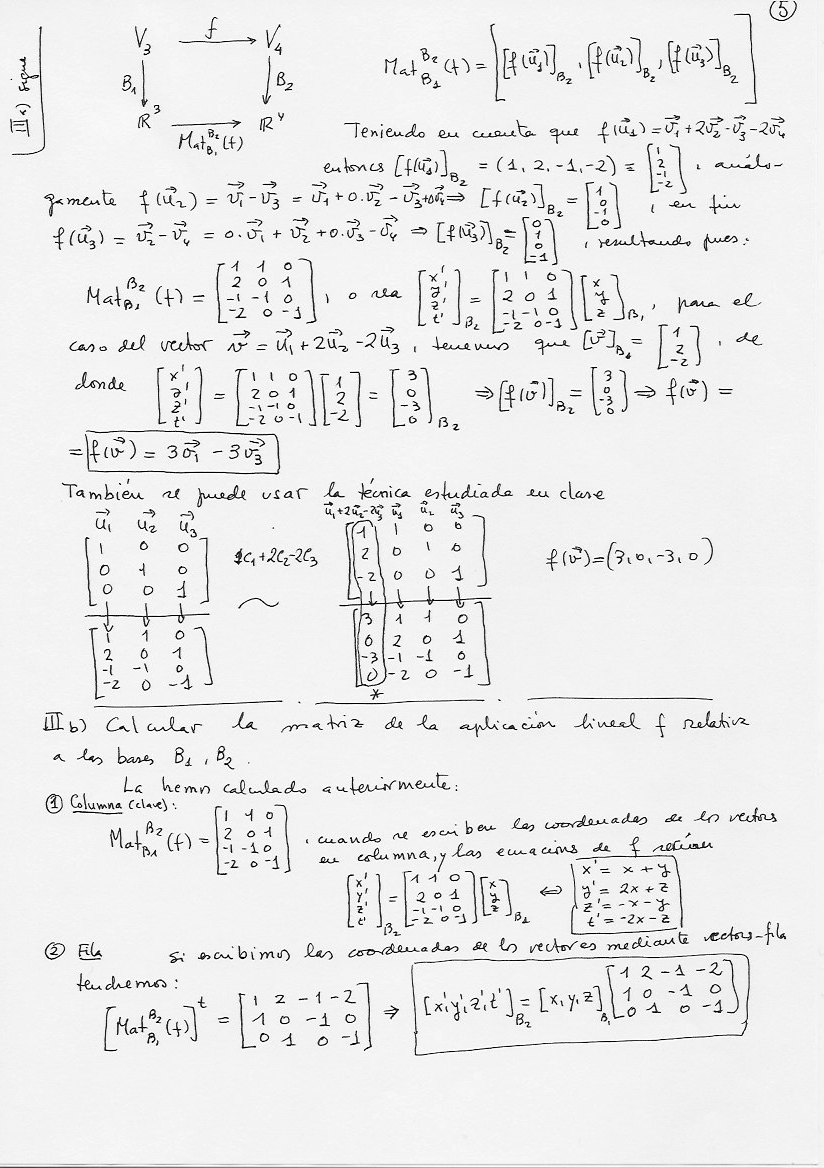 (5)
III a) sigue
V₃ —f→ V₄
B₁ ↓ ↓ B₂
ℝ³ —Mat_{B₁}^{B₂}(f)→ ℝ⁴
Mat_{B₁}^{B₂}(f) = [[f(u⃗₁)]_{B₂}, [f(u⃗₂)]_{B₂}, [f(u⃗₃)]_{B₂}]
Teniendo en cuenta que f(u⃗₁) = v⃗₁+2v⃗₂-v⃗₃-2v⃗₄
entonces [f(u⃗₁)]_{B₂} = (1, 2, -1, -2) ≡ [1; 2; -1; -2], análo-
gamente f(u⃗₂) = v⃗₁-v⃗₃ = v⃗₁+0·v⃗₂-v⃗₃+0v⃗₄ ⇒ [f(u⃗₂)]_{B₂} = [1; 0; -1; 0], en fin
f(u⃗₃) = v⃗₂-v⃗₄ = 0·v⃗₁+v⃗₂+0·v⃗₃-v⃗₄ ⇒ [f(u⃗₃)]_{B₂} = [0; 1; 0; -1], resultando pues:
Mat_{B₁}^{B₂}(f) = [1 1 0; 2 0 1; -1 -1 0; -2 0 -1], o sea [x'; y'; z'; t']_{B₂} = [1 1 0; 2 0 1; -1 -1 0; -2 0 -1] [x; y; z]_{B₁}, para el
caso del vector v⃗ = u⃗₁+2u⃗₂-2u⃗₃, tenemos que [v⃗]_{B₁} = [1; 2; -2], de
donde [x'; y'; z'; t'] = [1 1 0; 2 0 1; -1 -1 0; -2 0 -1] [1; 2; -2] = [3; 0; -3; 0]_{B₂} ⇒ [f(v⃗)]_{B₂} = [3; 0; -3; 0] ⇒ f(v⃗) =
= f(v⃗) = 3v⃗₁ - 3v⃗₃
También se puede usar la técnica estudiada en clase
u⃗₁ u⃗₂ u⃗₃
1 0 0
0 1 0
0 0 1
1 1 0
2 0 1
-1 -1 0
-2 0 -1
1C₁+2C₂-2C₃
u⃗₁+2u⃗₂-2u⃗₃ u⃗₁ u⃗₂ u⃗₃
1 1 0 0
2 0 1 0
-2 0 0 1
3 1 1 0
0 2 0 1
-3 -1 -1 0
0 -2 0 -1
*
f(v⃗) = (3, 0, -3, 0)
III b) Calcular la matriz de la aplicación lineal f relativa
a las bases B₁, B₂.
La hemos calculado anteriormente:
① Columna (clave):
Mat_{B₁}^{B₂}(f) = [1 1 0; 2 0 1; -1 -1 0; -2 0 -1], cuando se escriben las coordenadas de los vectores
en columna, y las ecuaciones de f serían
[x'; y'; z'; t']_{B₂} = [1 1 0; 2 0 1; -1 -1 0; -2 0 -1] [x; y; z]_{B₁} ⇔
x' = x + y
y' = 2x + z
z' = -x - y
t' = -2x - z
② Fila Si escribimos las coordenadas de los vectores mediante vectores-fila
tendremos:
[Mat_{B₁}^{B₂}(f)]^t = [1 2 -1 -2; 1 0 -1 0; 0 1 0 -1] ⇒ [x', y', z', t']_{B₂} = [x, y, z]_{B₁} [1 2 -1 -2; 1 0 -1 0; 0 1 0 -1]